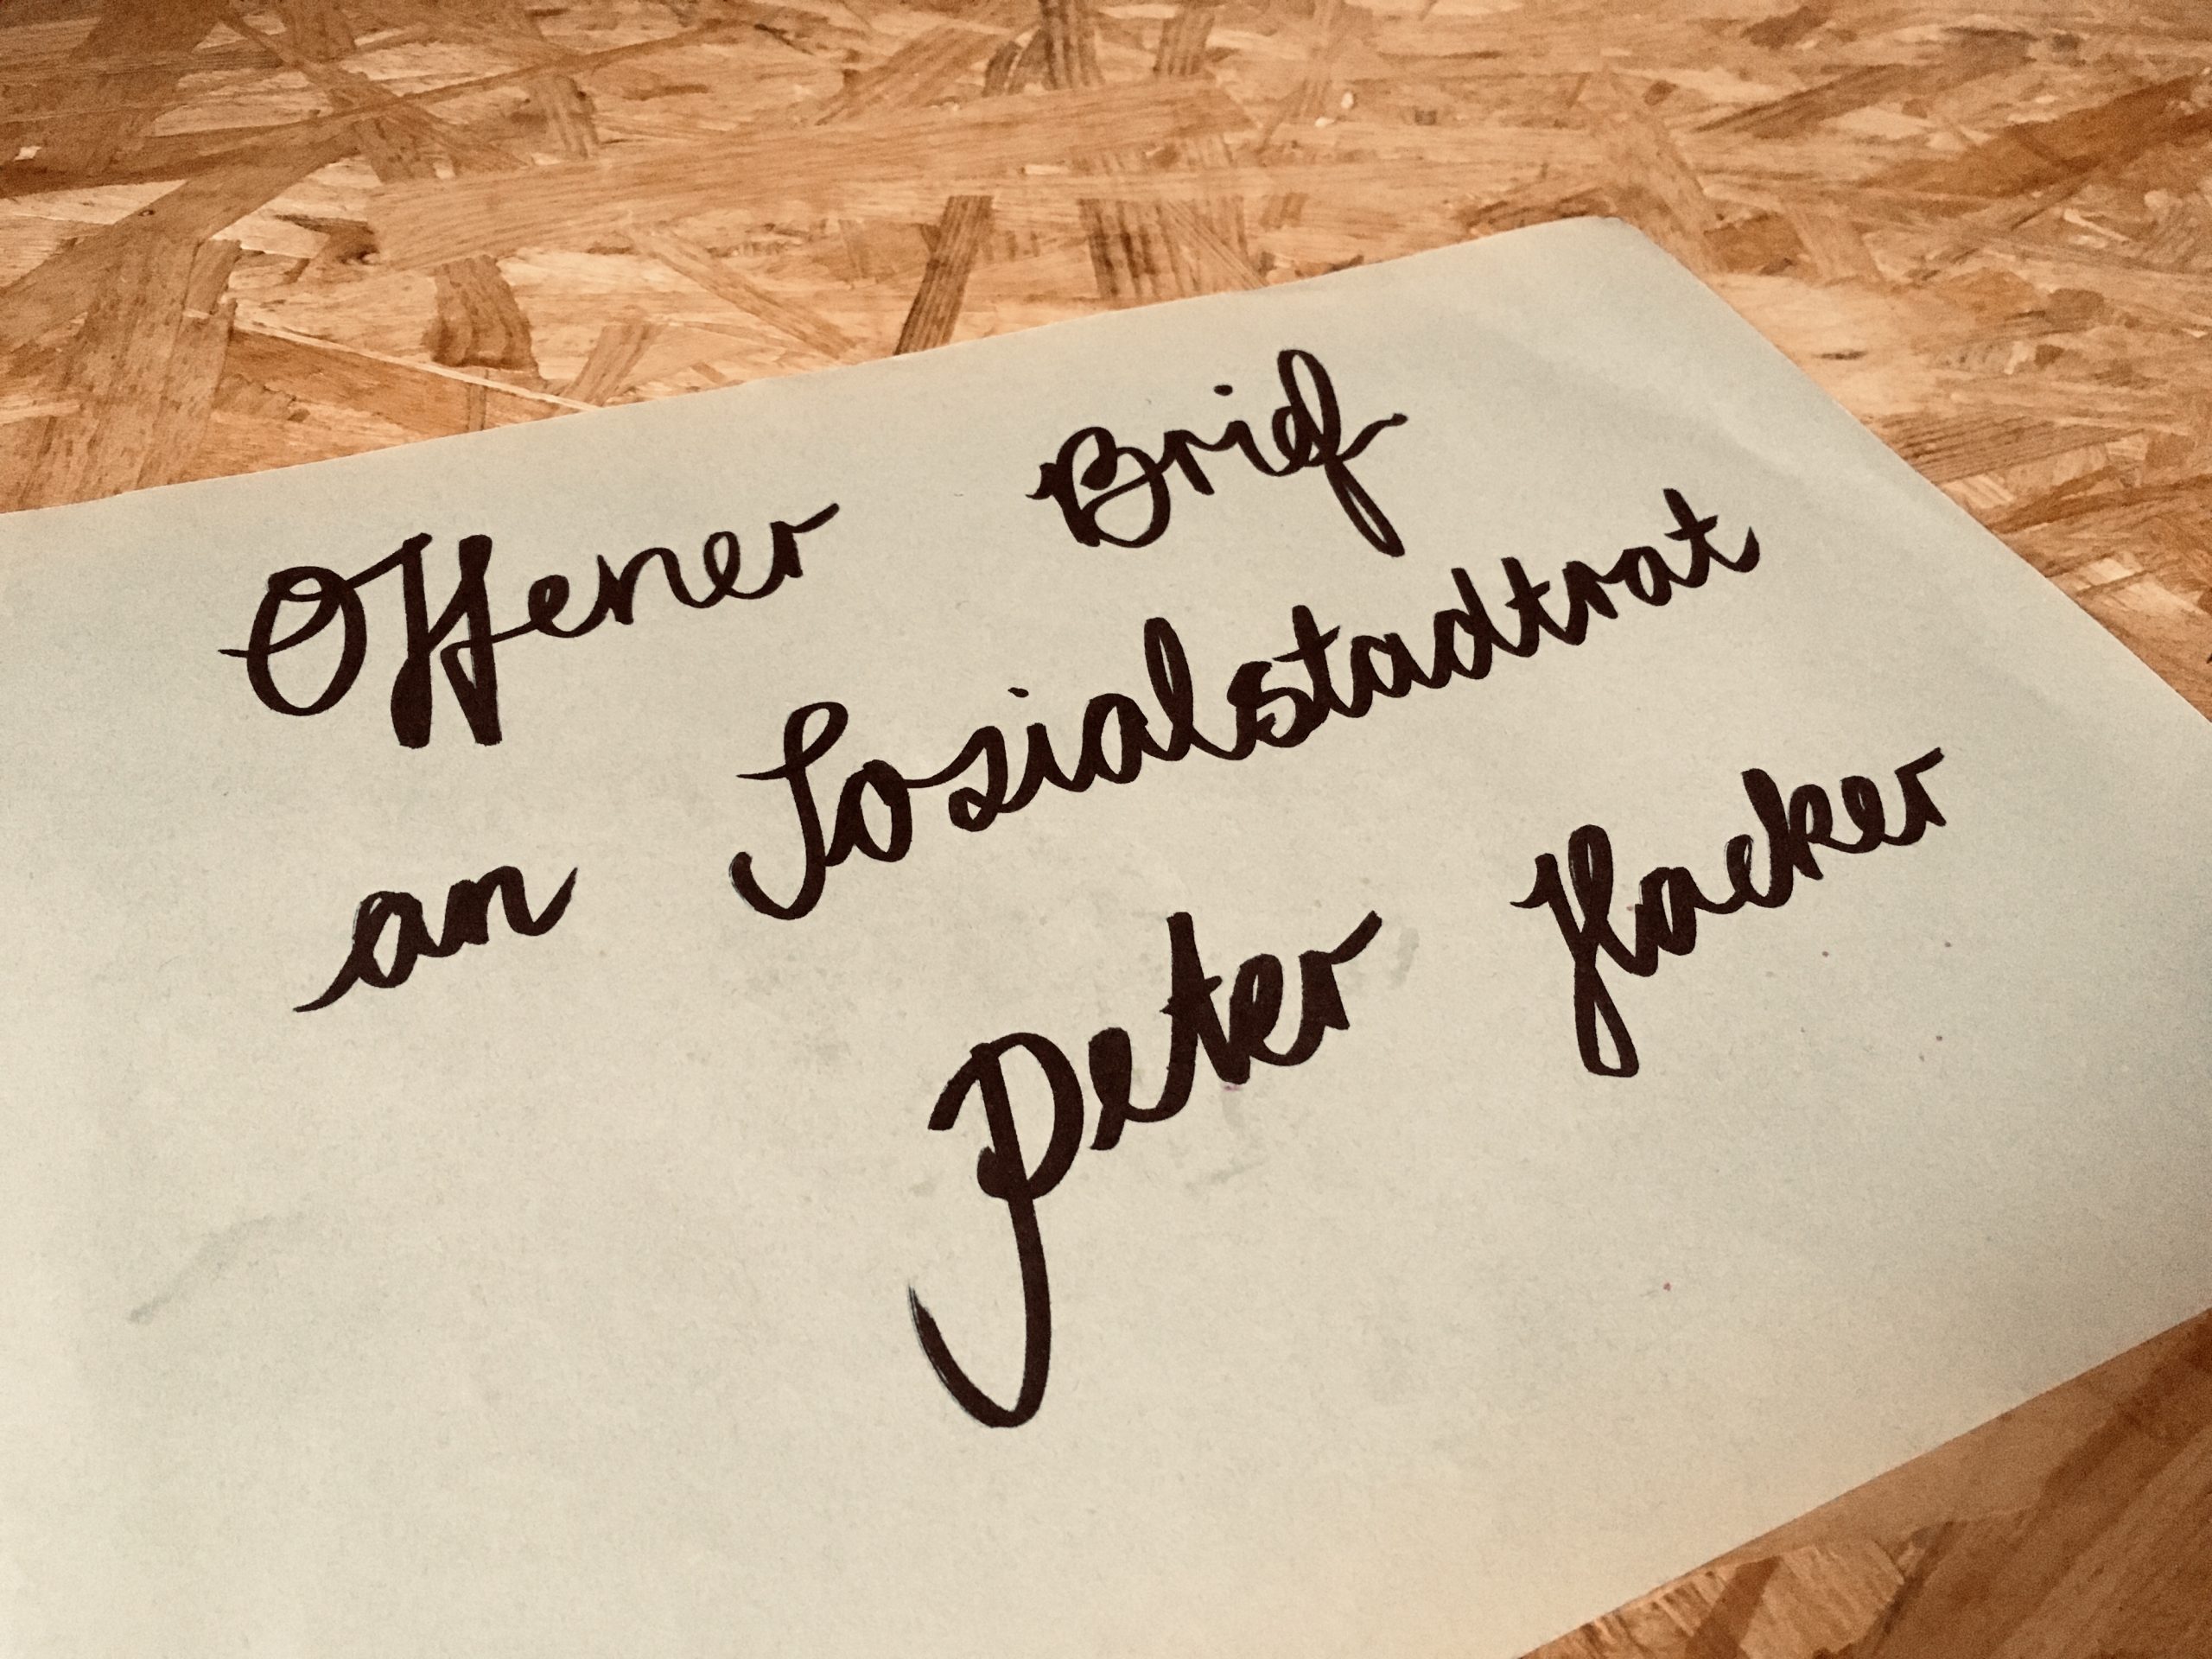 Offener Brief
an Sozialstadtrat
Peter Hacker